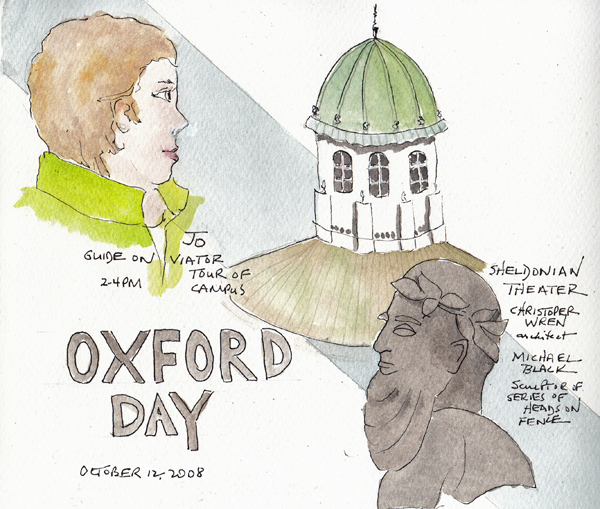 JO
GUIDE ON VIATOR
2-4PM TOUR OF
CAMPUS
SHELDONIAN
THEATER
CHRISTOPER
WREN
architect
MICHAEL
BLACK
SCULPTOR OF
SERIES OF
HEADS ON
FENCE
OXFORD
DAY
OCTOBER 12, 2008